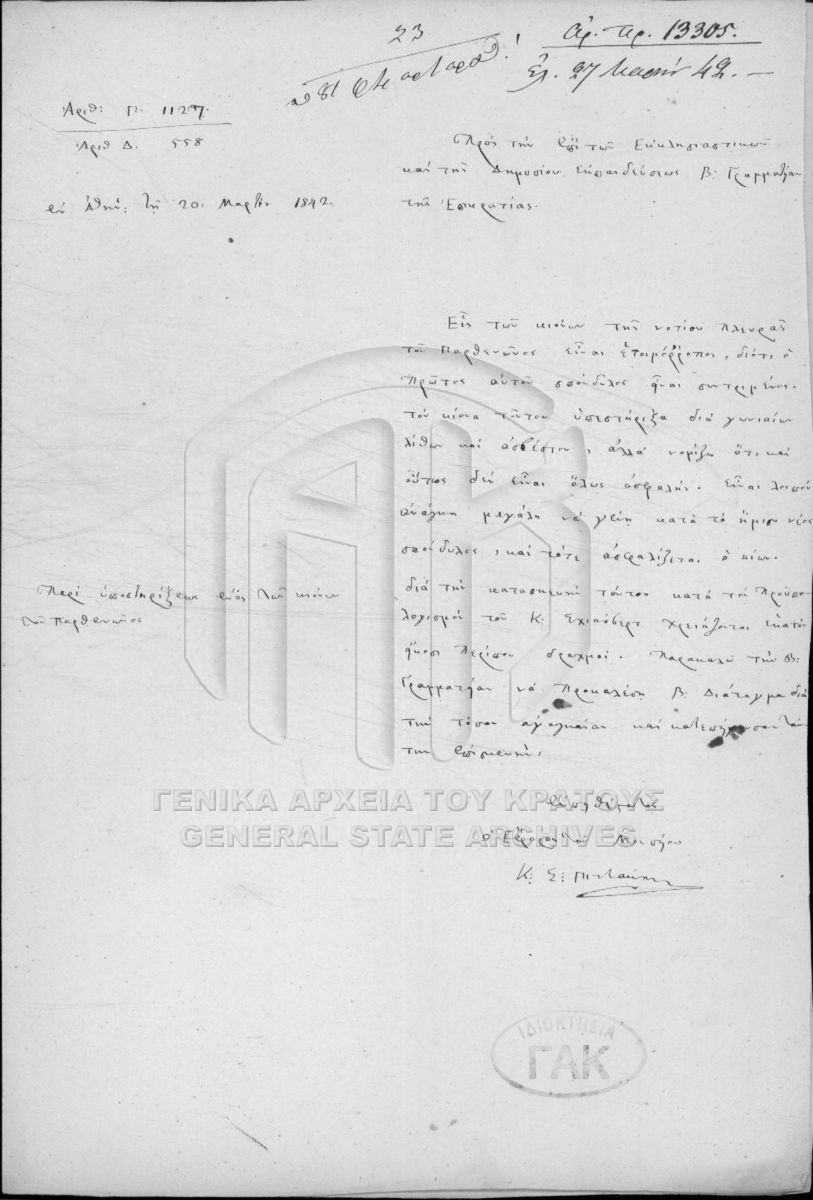 23
Ἀρ. Πρ. 13305.
Ἐλ. 27 Μαρτ. 42. —
Ἀριθ: Π. 1127.
Ἀριθ Δ. 558
ἐν Ἀθήν: τῇ 20. Μαρτίου 1842.
Πρὸς τὴν ἐπὶ τῶν Ἐκκλησιαστικῶν
καὶ τῆς Δημοσίου Ἐκπαιδεύσεως Β: Γραμματείαν
τῆς Ἐπικρατείας.
Εἷς τῶν κιόνων τῆς νοτίου πλευρᾶς
τοῦ Παρθενῶνος εἶναι ἑτοιμόρροπος, διότι ὁ
πρῶτος αὐτοῦ σπόνδυλος εἶναι συντριμένος.
τὸν κίονα τοῦτον ὑπεστήριξα διὰ γωνιαίων
λίθων καὶ ἀσβέστου, ἀλλὰ νομίζω ὅτι καὶ
οὕτως δὲν εἶναι ὅλως ἀσφαλής. Εἶναι λοιπὸν
ἀνάγκη μεγάλη νὰ γείνῃ κατὰ τὸ ἥμισυ νέος
σπόνδυλος, καὶ τότε ἀσφαλίζεται ὁ κίων.
διὰ τὴν κατασκευὴν τούτου κατὰ τὸν προϋπο-
λογισμὸν τοῦ Κ. Σχάουβερτ χρειάζονται ἑκατὸν
εἴκοσι περίπου δραχμαί. Παρακαλῶ τὴν Β:
Γραμματείαν νὰ προκαλέσῃ Β: Διάταγμα διὰ
τὴν τόσον ἀναγκαίαν καὶ κατεπείγουσαν ταύ-
την ἐπισκευήν.
Περὶ ὑποστηρίξεως ἑνὸς τῶν κιόνων
τοῦ Παρθενῶνος
εὐπειθέστατος
ὁ Ἔφορος τοῦ Μουσείου
Κ: Σ: Πιττάκης
ΓΕΝΙΚΑ ΑΡΧΕΙΑ ΤΟΥ ΚΡΑΤΟΥΣ
GENERAL STATE ARCHIVES
ΙΔΙΟΚΤΗΣΙΑ
ΓΑΚ